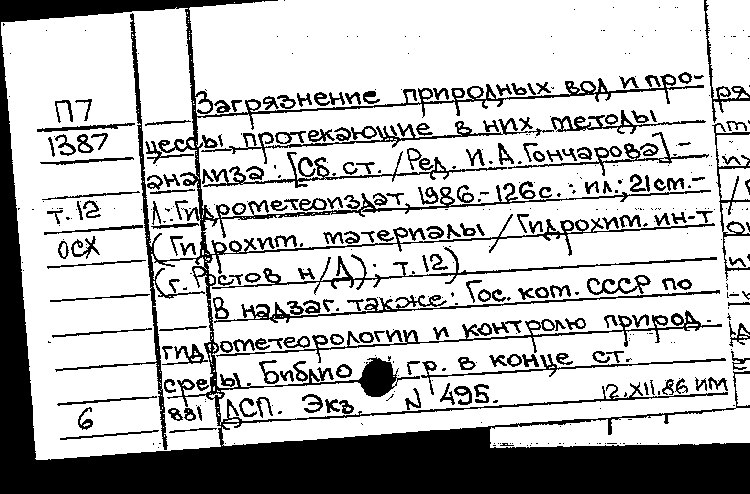 Загрязнение природных вод и про-
П7
1387 цессы, протекающие в них, методы
анализа: [Сб. ст. / Ред. И.А.Гончарова].-
т.12 Л.: Гидрометеоиздат, 1986.-126с.: ил.; 21см.-
ОСХ (Гидрохим. материалы / Гидрохим. ин-т
(г. Ростов н/Д); т.12).
В надзаг. также: Гос. ком. СССР по
гидрометеорологии и контролю природ.
среды. Библио гр. в конце ст.
6 881 ДСП. Экз. N 495. 12.XII.86 ИМ